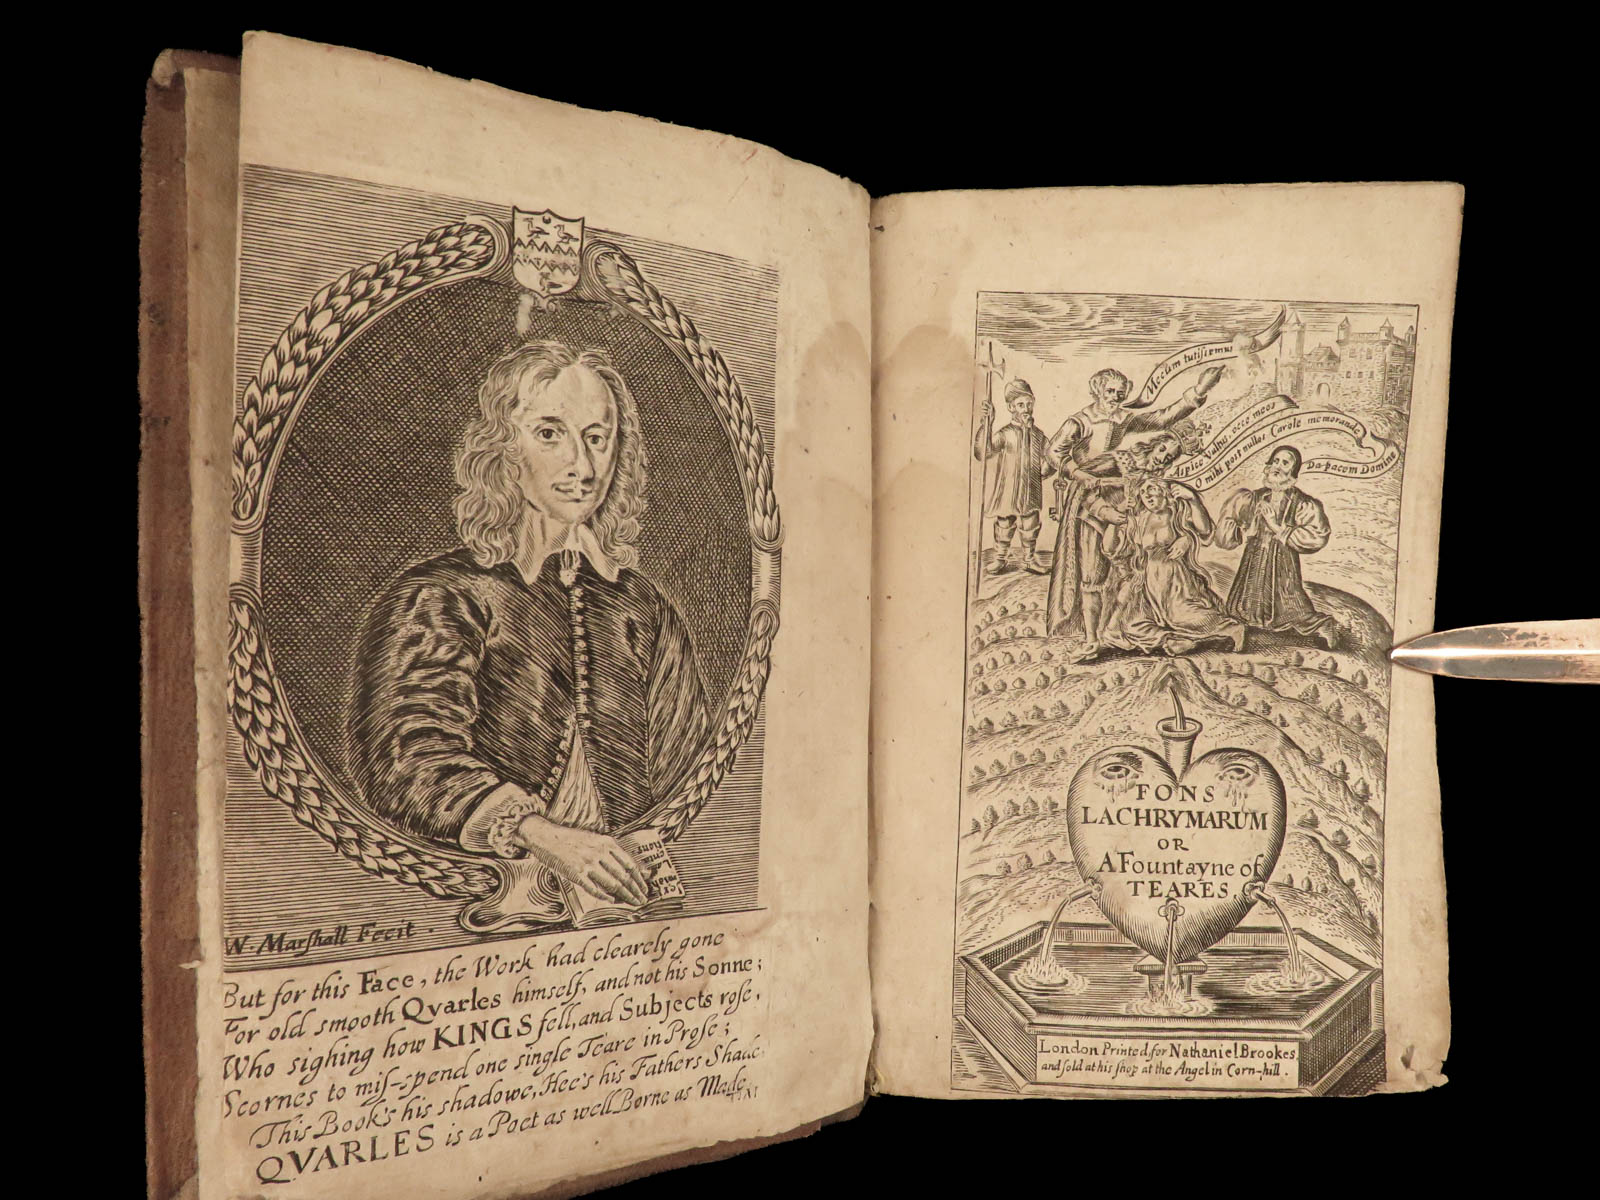 Jeremiah
Lamen
tations
W. Marshall Fecit.
But for this Face, the Work had clearely gone
For old smooth Qvarles himself, and not his Sonne;
Who sighing how KINGS fell, and Subjects rose,
Scornes to mis-spend one single Teare in Prose;
This Book's his shadowe, Hee's his Fathers Shade.
QVARLES is a Poet as well Borne as Made.
Mecum tutissimus
Aspice Vultus, ecce meos
O mihi post nullos Carole memorande
Da pacem Domine
FONS
LACHRYMARUM
OR
A Fountayne of
TEARES.
London Printed for Nathaniel Brookes,
and sold at his shop at the Angel in Corn-hill.